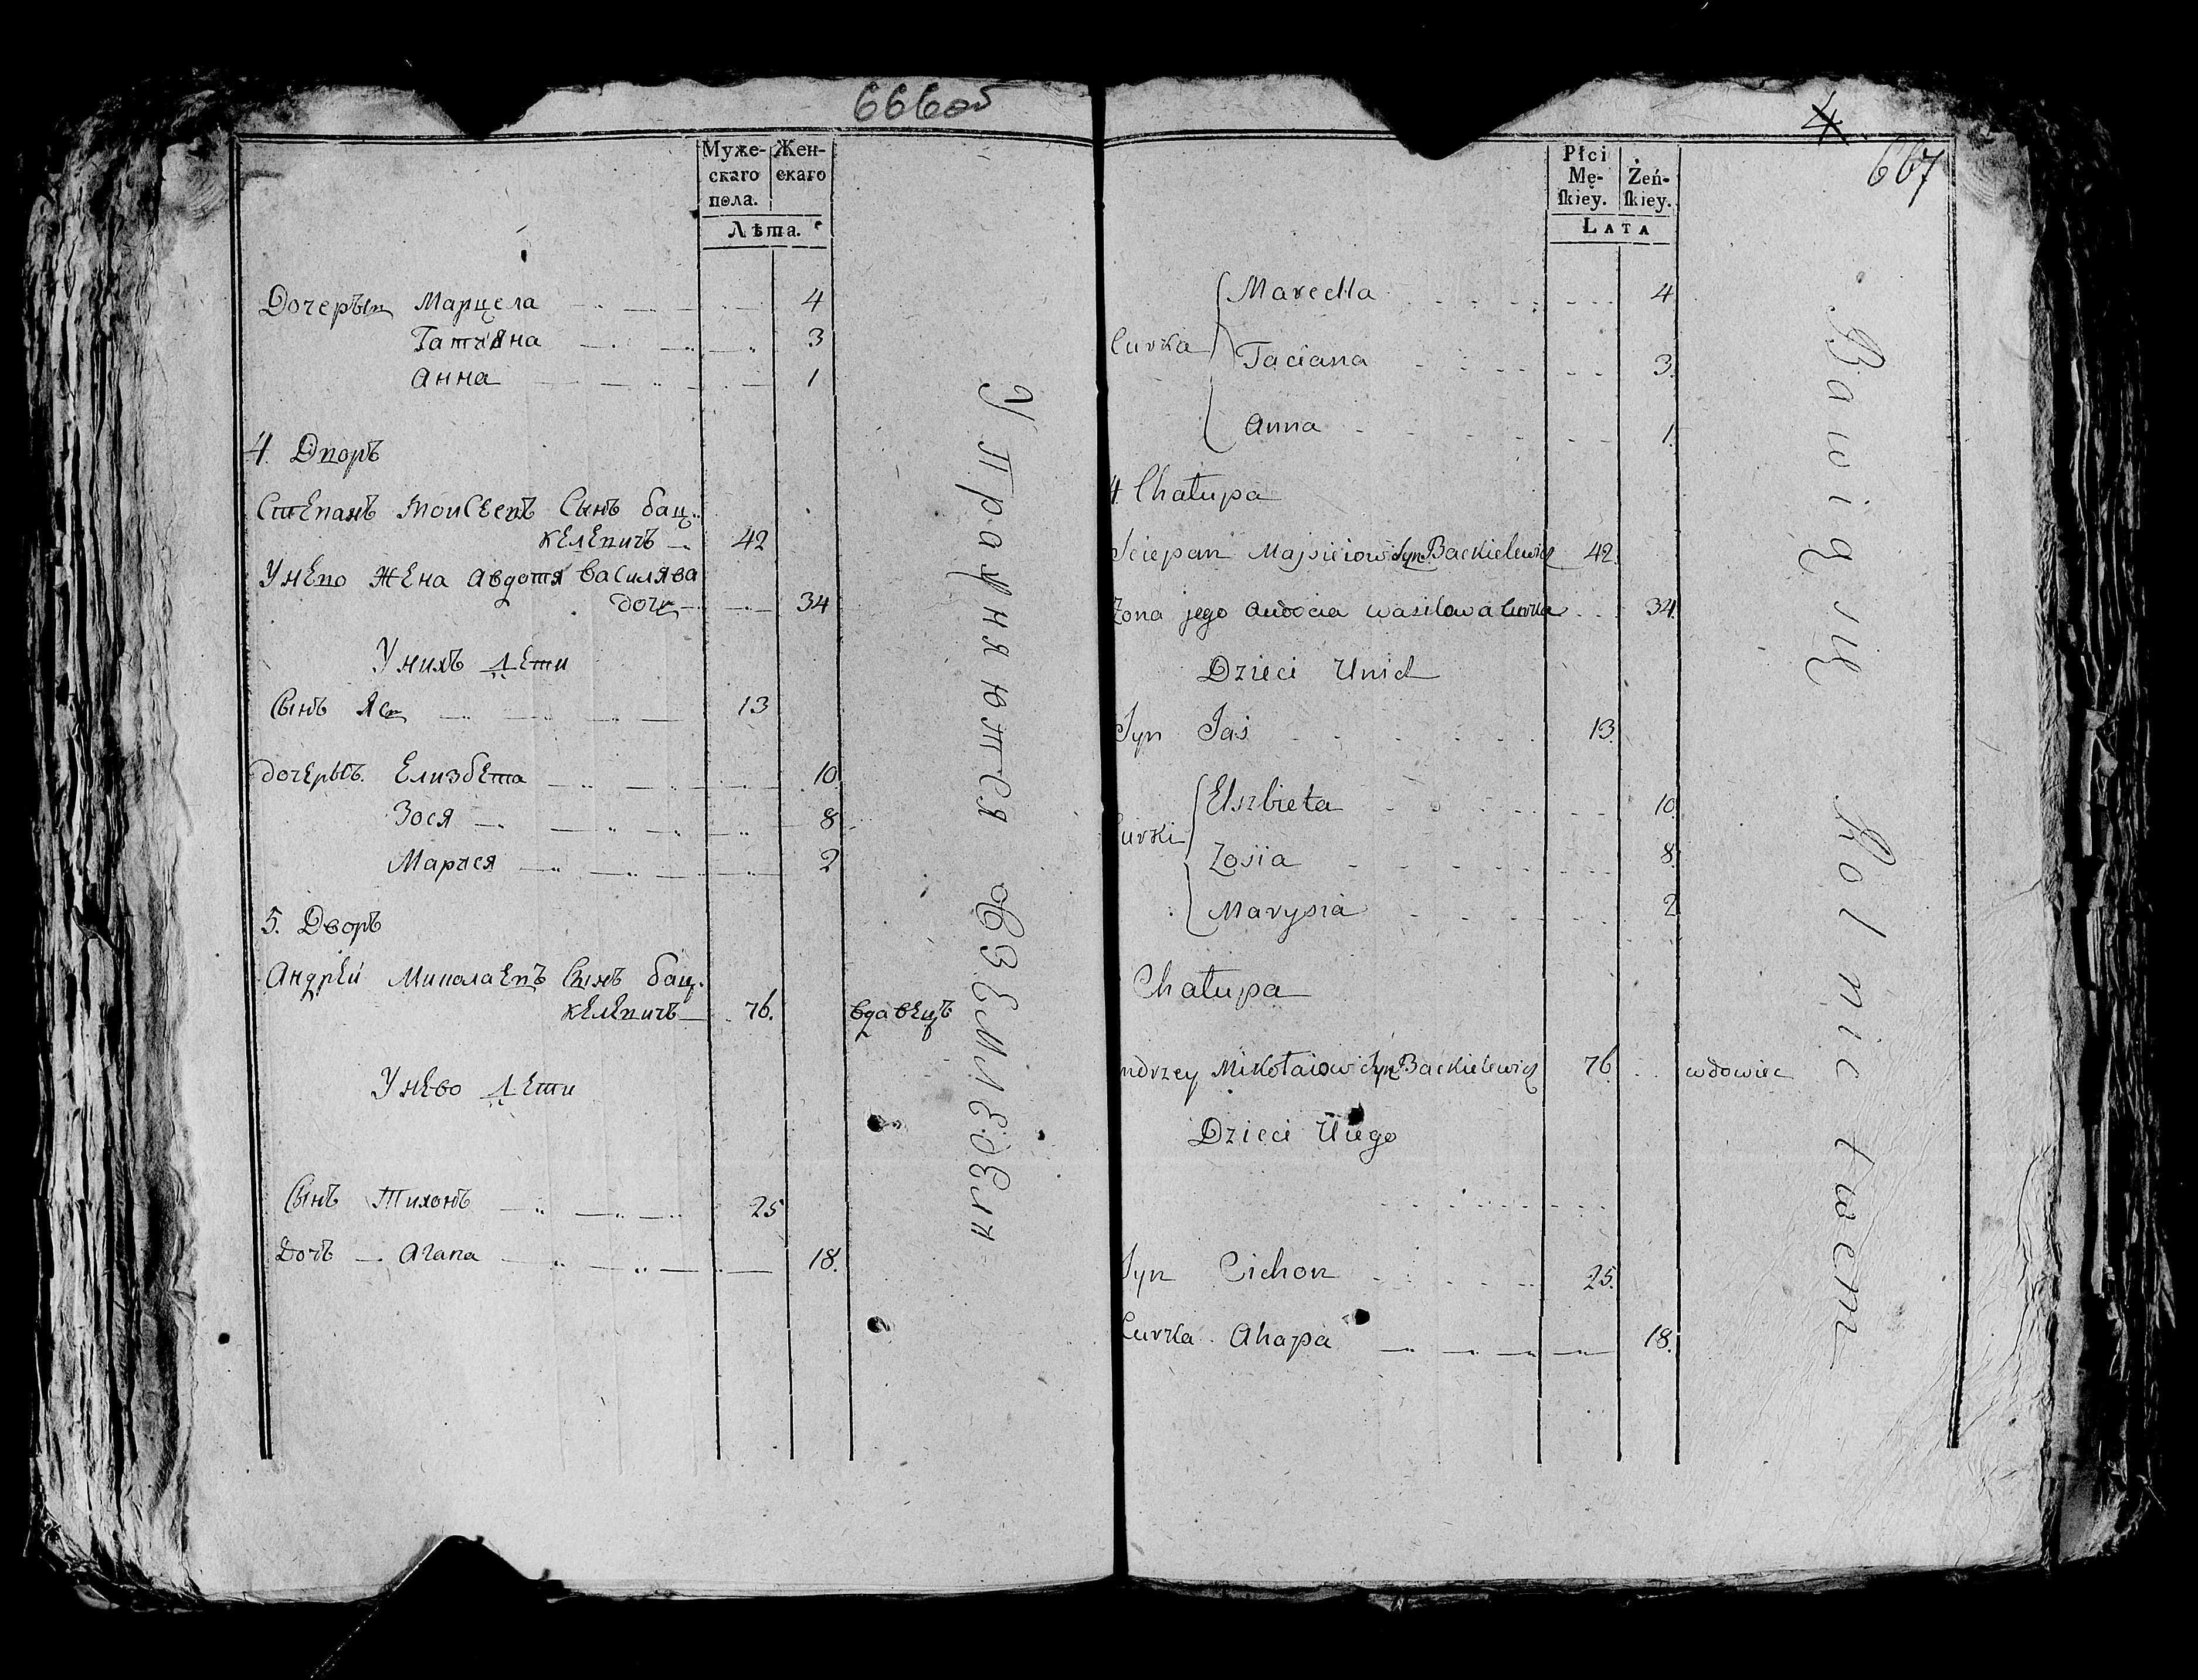 666об
Муже- Жен-
скаго скаго
пола.
Лѣта.
Дочерын Марцела 4
Татьяна 3
Анна 1
4. Дворъ
Степанъ Моисеевъ Сынъ бац-
келевичъ 42
У нево Жена Авдотя Василява
дочь 34
У нихъ Дети
Сынъ Яс 13
дочерыъ Елизбета 10
Зося 8
Марыся 2
5. Дворъ
Андрей Миколаевъ Сынъ бац-
келевичъ 76. вдавецъ
У нево Дети
Сынъ Тихонъ 25
Дочъ Агапа 18.
Упражняются
Хземледели
4
667
Płci
Mę- Żeń-
skiey. skiey.
LATA
Marcella 4
Curka Taciana 3.
Anna 1.
4. Chałupa
Sciepan Majsieiow Syn Backielewicz 42.
Zona jego Audocia Wasilowa Curka 34.
Dzieci Unich
Syn Jaś 13.
Elszbieta 10.
Curki Zosia 8.
Marysia 2
Chałupa
ndrzey Mikołaiow Syn Backielewicz 76 wdowiec
Dzieci Uiego
Syn Cichon 25.
Curka Ahapa 18.
Bawią się Rolnictwem